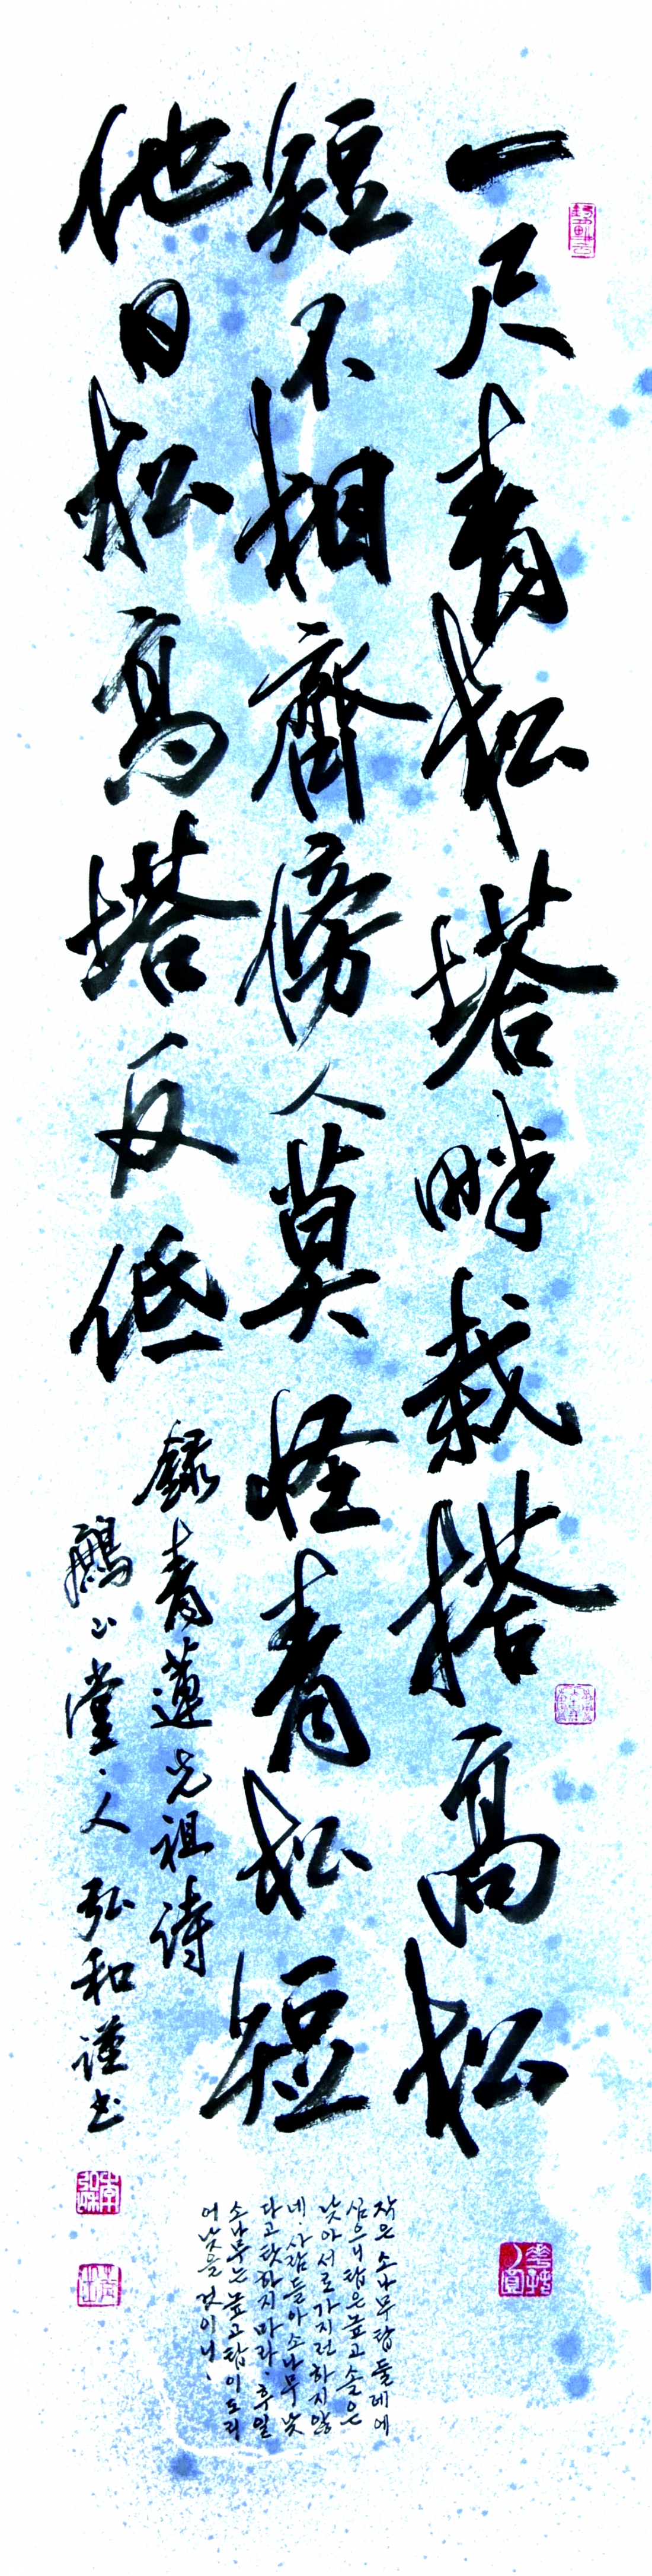 一尺青松塔畔栽搭高松
短不相齊傍人莫怪青松短
他日松高塔反低
錄青蓮先祖詩
堂人弘和謹书
작은 소나무 탑 둘레에
심으니 탑은 높고 솔은
낮아 서로 가지런하지 않
네. 사람들아 소나무 낮
다고 탓하지 마라. 후일
소나무는 높고 탑이 도리
어 낮을 것이니.